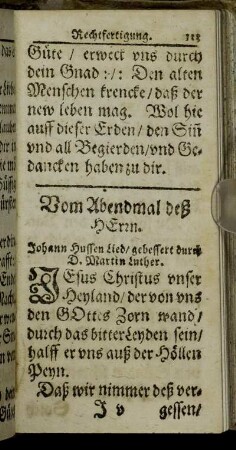 Rechtfertigung. 113
Güte / erweck vns durch
dein Gnad :/: Den alten
Menschen krencke / daß der
new leben mag. Wol hie
auff dieser Erden / den Siñ
vnd all Begierden / vnd Ge-
dancken haben zu dir.
Vom Abendmal deß
HErrn.
Johann Hussen Lied / gebessert durch
D. Martin Luther.
JEsus Christus vnser
Heyland / der von vns
den GOttes Zorn wand /
durch das bitter Leyden sein /
halff er vns auß der Höllen
Peyn.
Daß wir nimmer deß ver-
J v gessen /